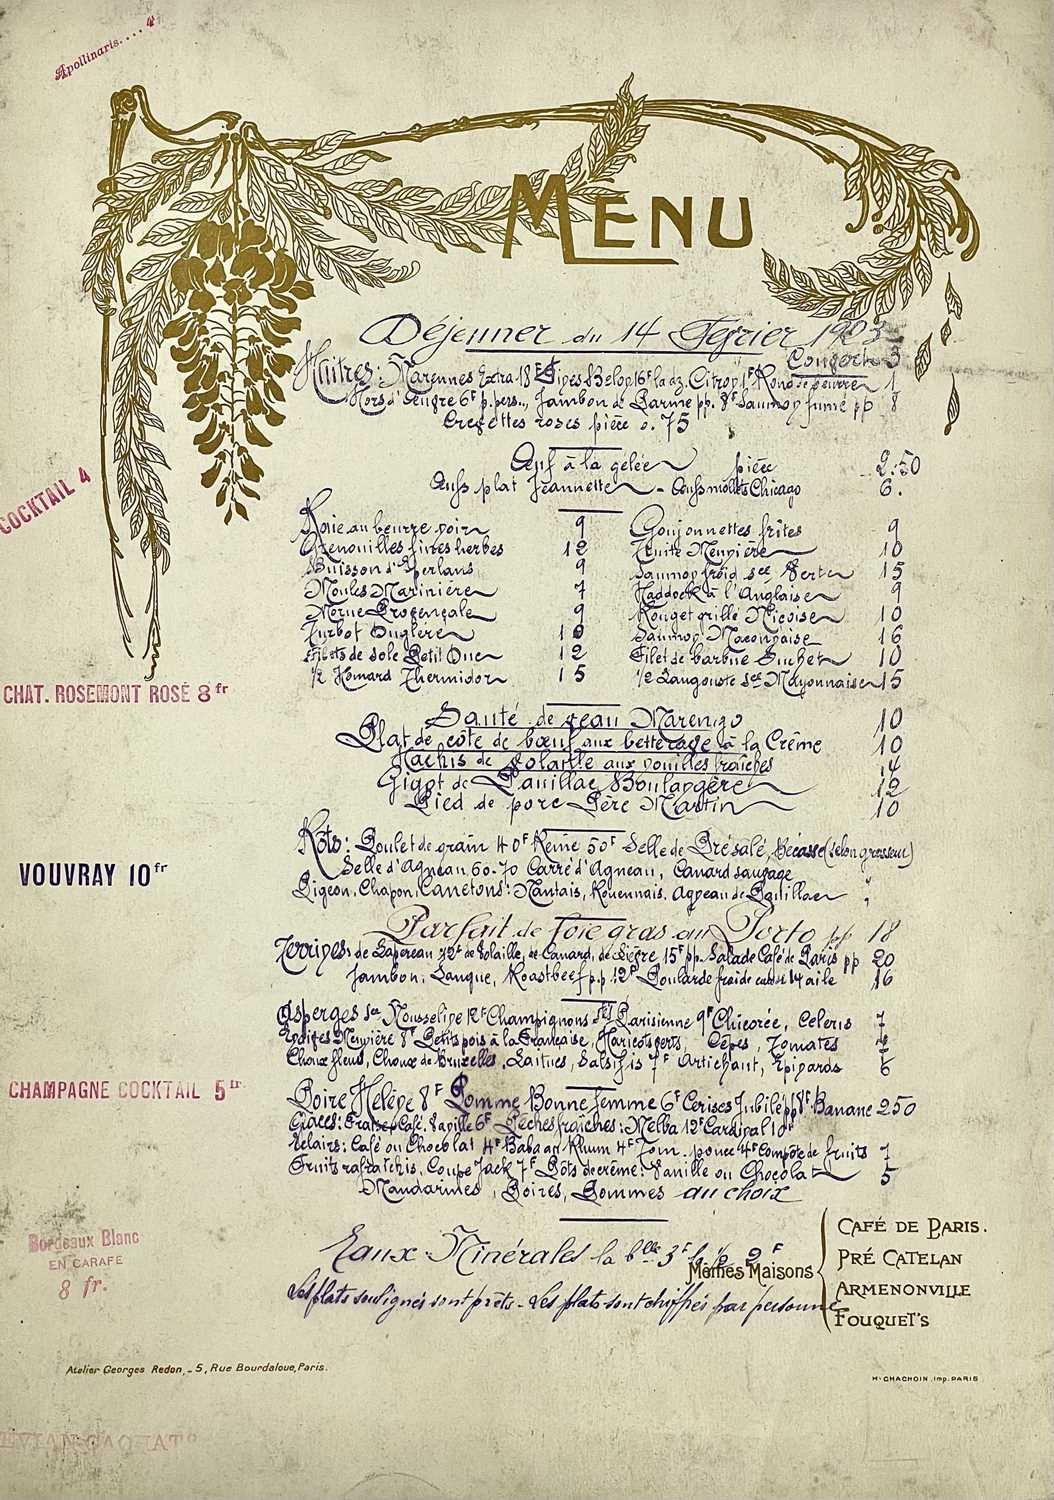 Apollinaris.... 4
MENU
Déjeuner du 14 Février 1923
Couvert 3
Huîtres: Marennes Extra 18F Belon 16F la dz. Citron 1F Rond de beurre 1
Hors d'Œuvre 6F p. pers.., Jambon de Parme pp. 8F Saumon fumé pp 8
Crevettes roses pièce 0.75
Œuf à la gelée pièce 2.50
Œufs plat Jeannette - Œufs mollets Chicago 6.
Raie au beurre noir 9 Goujonnettes frites 9
Grenouilles fines herbes 12 Truite Meunière 10
Buisson d'Eperlans 9 Saumon froid sce Verte 15
Moules Marinière 7 Haddock à l'Anglaise 9
Morue Provençale 9 Rouget grillé Niçoise 10
Turbot Dugléré 10 Saumon Maconnaise 16
Filets de sole Petit Duc 12 Filet de barbue Suchet 10
1/2 Homard Thermidor 15 1/2 Langouste sce Mayonnaise 15
Sauté de veau Marengo 10
Plat de côte de bœuf aux betterave à la Crême 10
Hachis de Volaille aux nouilles fraîches 14
Gigot de Pauillac Boulangère 12
Pied de porc Père Martin 10
Rôts: Poulet de grain 40F Reine 50F Selle de Présalé, Bécasse (selon grosseur)
Selle d'Agneau 60-70 Carré d'Agneau, Canard sauvage
Pigeon, Chapon, Canetons: Nantais, Rouennais. Agneau de Pauillac
Parfait de foie gras au Porto pp 18
Terrines: de Lapereau de Volaille, de Canard, de Lièvre 15F pp. Salade Café de Paris pp 20
Jambon, Langue, Roastbeef p.p. 12F Poularde froide 14 aile 16
Asperges sce Mousseline 12F Champignons Parisienne 9F Chicorée, Celeris 7
Endives Meunière 8F Petits pois à la Française, Haricots verts, Cèpes, Tomates
Choux fleurs, Choux de Bruxelles, Laitues, Salsifis 7F Artichaut, Epinards 6
Poire Hélène 8F Pomme Bonne femme 6F Cerises Jubilé pp 8F Banane 2.50
Glaces: Fraise, Café, Vanille 6F Pêches fraîches: Melba 12F Cardinal 10F
Eclairs: Café ou Chocolat 4F Baba au Rhum 4F Tom-pouce 4F Compôte de fruits 7
Fruits rafraichis, Coupe Jack 7F Pôts de crème: Vanille ou Chocolat 5
Mandarines, Poires, Pommes au choix
Eaux Minérales la blle 3F la 1/2 2F
Les plats soulignés sont prêts - Les plats sont chiffrés par personne
Mêmes Maisons
CAFÉ DE PARIS.
PRÉ CATELAN
ARMENONVILLE
FOUQUET'S
COCKTAIL 4
CHAT. ROSEMONT ROSÉ 8 fr
VOUVRAY 10fr
CHAMPAGNE COCKTAIL 5fr
Bordeaux Blanc
EN CARAFE
8 fr.
Atelier Georges Redon, - 5, Rue Bourdaloue, Paris.
Hi CHACHOIN . Imp. PARIS